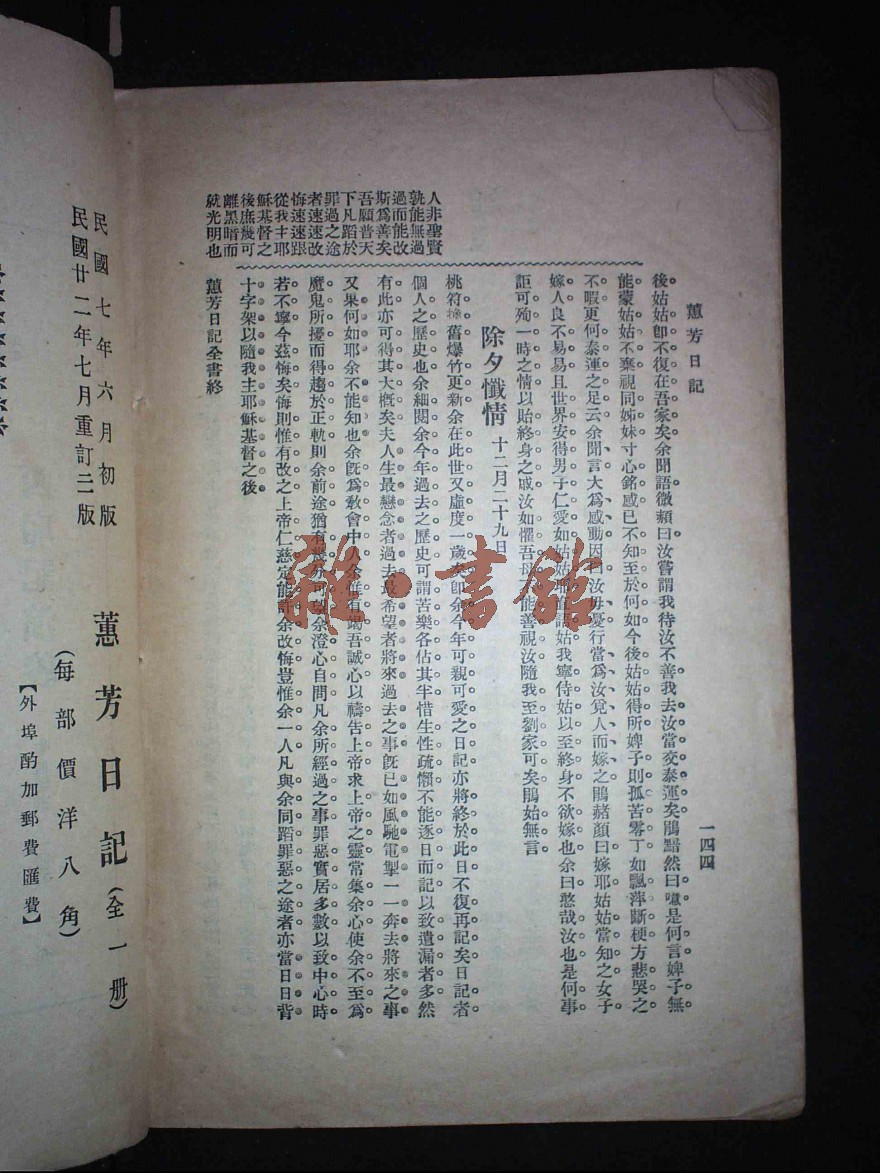 蕙芳日記
一四四
後姑姑卽不復在吾家矣余聞語微頷曰汝嘗謂我待汝不善我去汝當交泰運矣鵑黯然曰噫是何言婢子無
能蒙姑姑不棄視同姊妹寸心銘感已不知至於何如今後姑姑得所婢子則孤苦零丁如飄萍斷梗方悲哭之
不暇更何泰運之足云余聞言大爲感動因曰汝毋憂行當爲汝覓人而嫁之鵑赭顏曰嫁耶姑姑當知之女子
嫁人良不易易且世界安得男子仁愛如姑姑耶直語姑我寧侍姑以至終身不欲嫁也余曰憨哉汝也是何事
詎可殉一時之情以貽終身之戚汝如懼吾母不能善視汝隨我至劉家可矣鵑始無言
除夕懺情 十二月二十九日
桃符換舊爆竹更新余在此世又虛度一歲矣卽余今年可親可愛之日記亦將終於此日不復再記矣日記者
個人之歷史也余細閱余今年過去之歷史可謂苦樂各佔其半惜生性疏懶不能逐日而記以致遺漏者多然
有此亦可得其大槪矣夫人生最戀念者過去最希望者將來過去之事旣已如風馳電掣一一奔去將來之事
又果何如耶余不能知也余旣爲敎會中人余惟有竭吾誠心以禱告上帝求上帝之靈常集余心使余不至爲
魔鬼所擾而得趨於正軌則余前途猶有幾分可望余澄心自問凡余所經過之事罪惡實居多數以致中心時
若不寧今茲悔矣悔則惟有改之上帝仁慈定能許余改悔豈惟余一人凡與余同蹈罪惡之途者亦當日日背
十字架以隨我主耶穌基督之後
蕙芳日記全書終
人非聖賢
孰能無過
過而能改
斯爲善矣
吾願普天
下凡蹈於
罪過之途
者速速改
悔速速跟
從我主耶
穌基督之
後庶幾可
離黑暗而
就光明也
民國七年六月初版
民國廿二年七月重訂二版
蕙芳日記(全一册)
(每部價洋八角)
【外埠酌加郵費匯費】
雜·書館